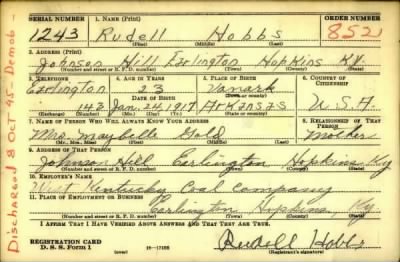 SERIAL NUMBER 1. NAME (Print) ORDER NUMBER
1243 Rudell Hobbs 8521
(First) (Middle) (Last)
2. ADDRESS (Print)
Johnson Hill Earlington Hopkins Ky.
(Number and street or R. F. D. number) (Town) (County) (State)
3. TELEPHONE 4. AGE IN YEARS 5. PLACE OF BIRTH 6. COUNTRY OF CITIZENSHIP
Earlington 23 Vanark
DATE OF BIRTH
143 Jan. 24, 1917 Arkansas U.S.A
7. NAME OF PERSON WHO WILL ALWAYS KNOW YOUR ADDRESS 8. RELATIONSHIP OF THAT PERSON
Mrs. Maybelle Gold Mother
(Mr., Mrs., Miss) (First) (Middle) (Last)
9. ADDRESS OF THAT PERSON
Johnson Hill Earlington Hopkins Ky
(Number and street or R. F. D. number) (Town) (County) (State)
10. EMPLOYER'S NAME
West Kentucky Coal Company
11. PLACE OF EMPLOYMENT OR BUSINESS
Earlington Hopkins Ky
(Number and street or R. F. D. number) (Town) (County) (State)
I AFFIRM THAT I HAVE VERIFIED ABOVE ANSWERS AND THAT THEY ARE TRUE.
REGISTRATION CARD
D. S. S. Form 1 (over) Rudell Hobbs
(Registrant's signature)
Discharged 8 OCT 45 - Demob -